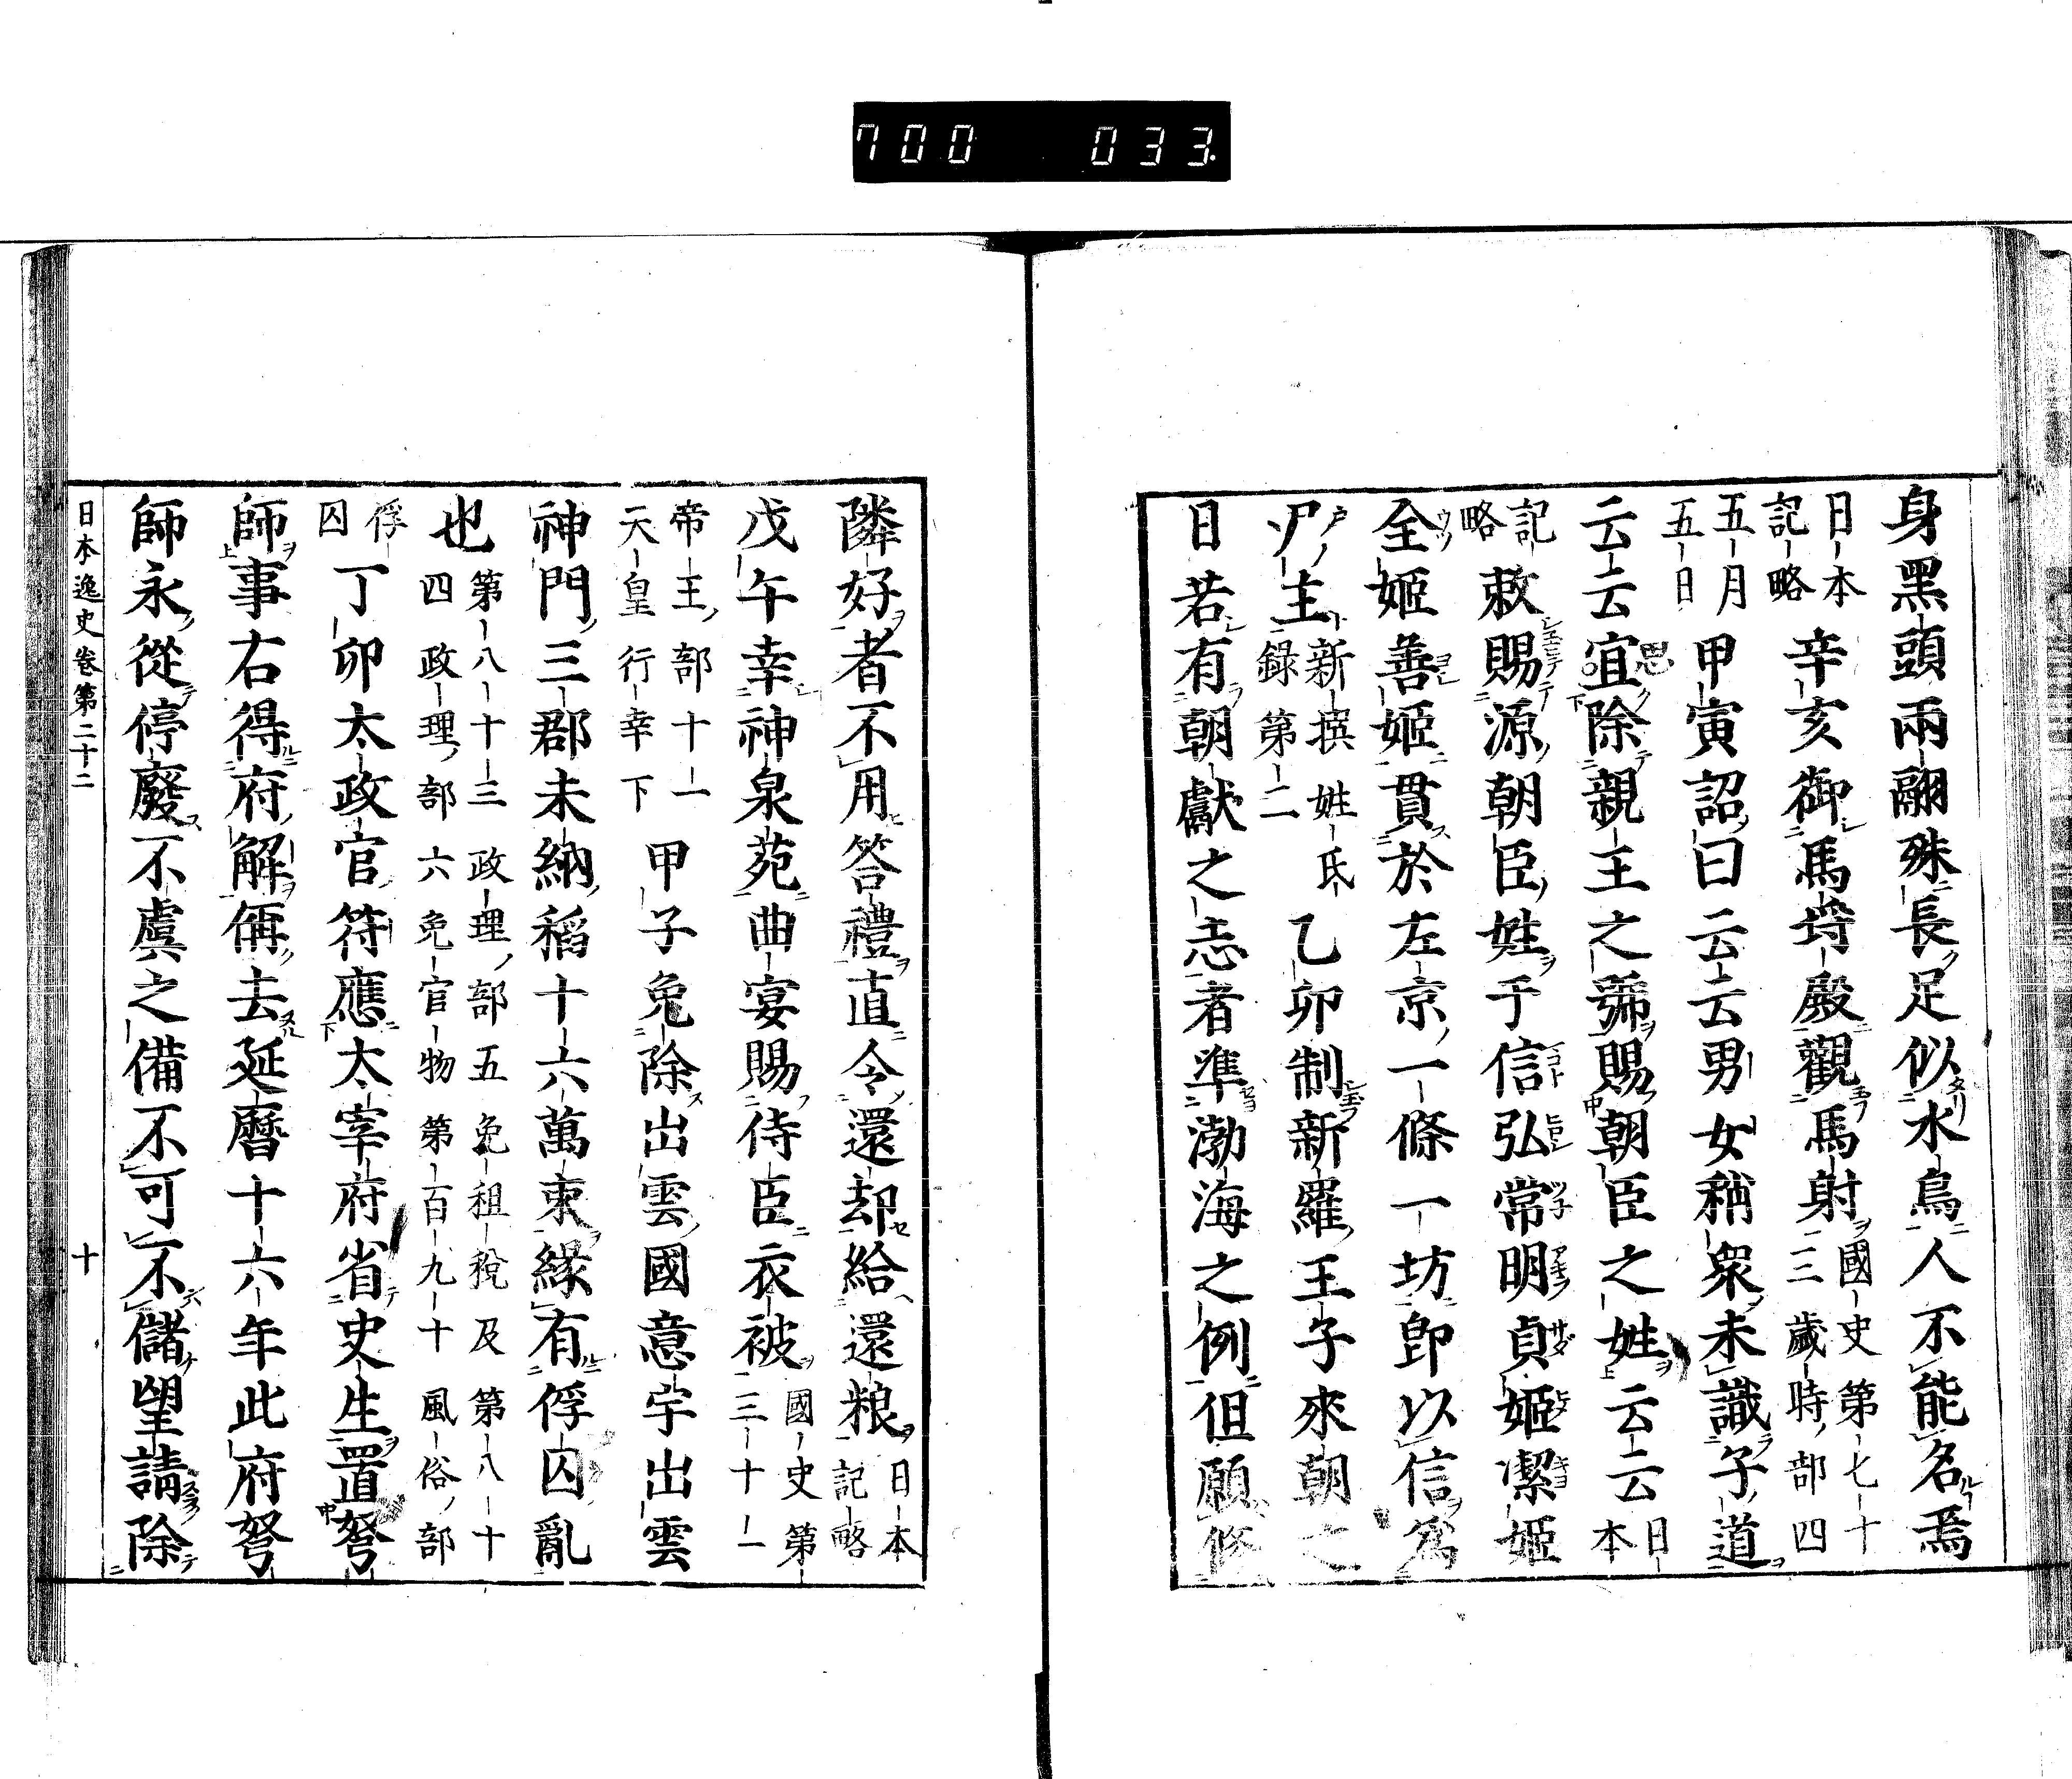 700 033
身黑頭兩翮殊長足似水鳥人不能名焉
日本記略 辛亥御馬埒殿觀馬射 國史第七十三歲時部四
五月五日 甲寅詔曰云云男女稍衆未識子道
云云宜除親王之號賜朝臣之姓云云 日本
記略 敕賜源朝臣姓于信弘常明貞姬潔姬
全姬善姬貫於左京一條一坊卽以信爲
戸主 新撰姓氏錄第二 乙卯制新羅王子來朝之
日若有朝獻之志者準渤海之例但願修
隣好者不用答禮直令還却給還粮 日本記略
戊午幸神泉苑曲宴賜侍臣衣被 國史第三十一
帝王部十一 天皇行幸下 甲子免除出雲國意宇出雲
神門三郡未納稻十六萬束緣有俘囚亂
也 第八十三政理部五免租稅及第八十四政理部六免官物第百九十風俗部
俘囚 丁卯太政官符應太宰府省史生置弩
師事右得府解偁去延曆十六年此府弩
師永從停廢不虞之備不可不儲望請除
日本逸史卷第二十二 十